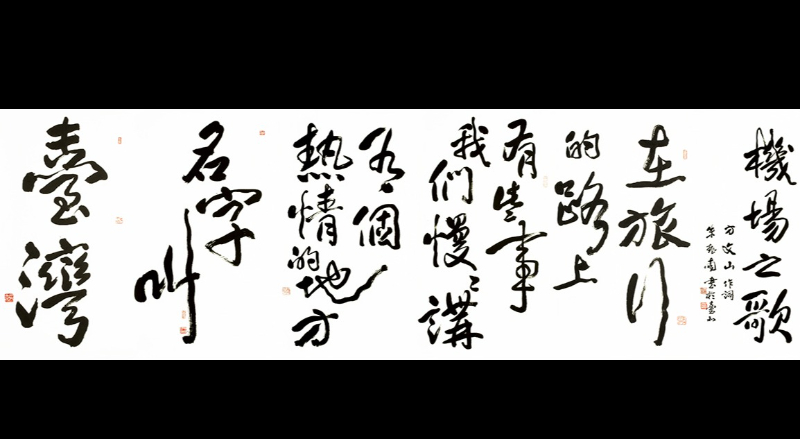 機場之歌
方文山 作詞
書於臺山
在旅行
的路上
有些事
我們慢慢講
有個
熱情的地方
名字
叫
臺灣